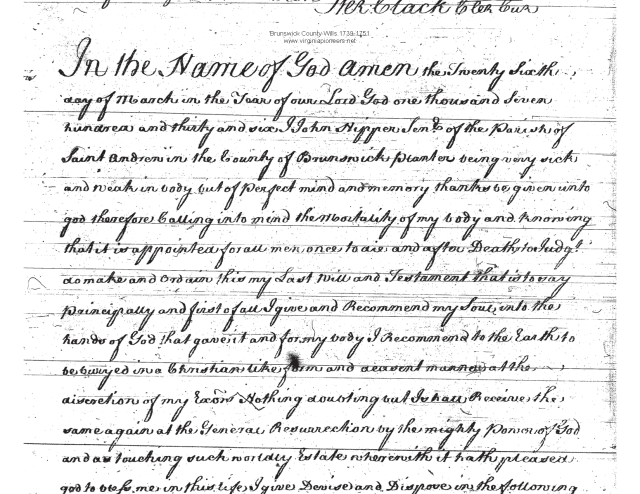 Ster. Clack Cler Cur
Brunswick County Wills 1739-1751
www.virginiapioneers.net
In the Name of God Amen the Twenty Sixth
day of March in the Year of our Lord God one thousand Seven
hundred and thirty and six I John Nipper Senr. of the Parish of
Saint Andrew in the County of Brunswick planter being very sick
and weak in body but of perfect mind and memory thanks be given unto
god therefore Calling into mind the Mortality of my body and knowing
that it is appointed for all men once to die and after Death to Judgt.
do make and Ordain this my Last Will and Testament that is to say
principally and first of all I give and Recommend my Soul into the
hands of God that gave it and for my body I Recommend to the Earth to
be buryed in a Christian like form and deasent manner at the
discretion of my Exors. Nothing doubting but I shall Receive the
same again at the General Resurrection by the mighty Power of God
and as touching such worldly Estate wherewith it hath pleased
god to bless me in this life I give Devise and Dispose in the following